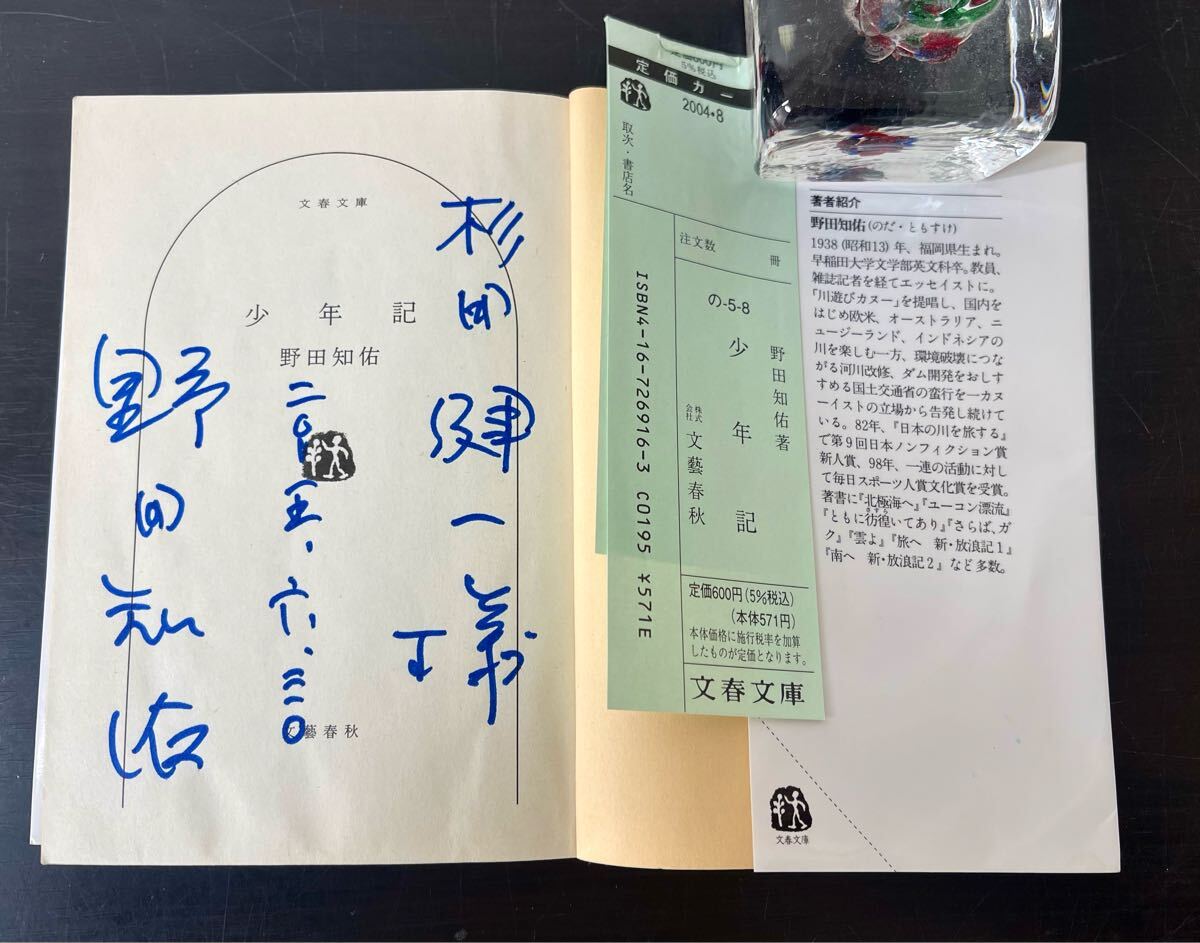 文春文庫
少年記
野田知佑
文藝春秋
杉田健一義
二〇〇五、六、二〇
野田知佑
5%税込
定価カー
2004・8
取次・書店名
注文数 冊
の-5-8
野田知佑著
少年記
株式会社 文藝春秋
ISBN4-16-726916-3 C0195 ¥571E
定価600円(5%税込)
(本体571円)
本体価格に施行税率を加算
したものが定価となります。
文春文庫
著者紹介
野田知佑(のだ・ともすけ)
1938(昭和13)年、福岡県生まれ。
早稲田大学文学部英文科卒。教員、
雑誌記者を経てエッセイストに。
「川遊びカヌー」を提唱し、国内を
はじめ欧米、オーストラリア、ニ
ュージーランド、インドネシアの
川を楽しむ一方、環境破壊につな
がる河川改修、ダム開発をおしす
すめる国土交通省の蛮行を一カヌ
ーイストの立場から告発し続けて
いる。82年、『日本の川を旅する』
で第9回日本ノンフィクション賞
新人賞、98年、一連の活動に対し
て毎日スポーツ人賞文化賞を受賞。
著書に『北極海へ』『ユーコン漂流』
『ともに彷徨いてあり』『さらば、ガ
ク』『雲よ』『旅へ 新・放浪記1』
『南へ 新・放浪記2』など多数。
文春文庫